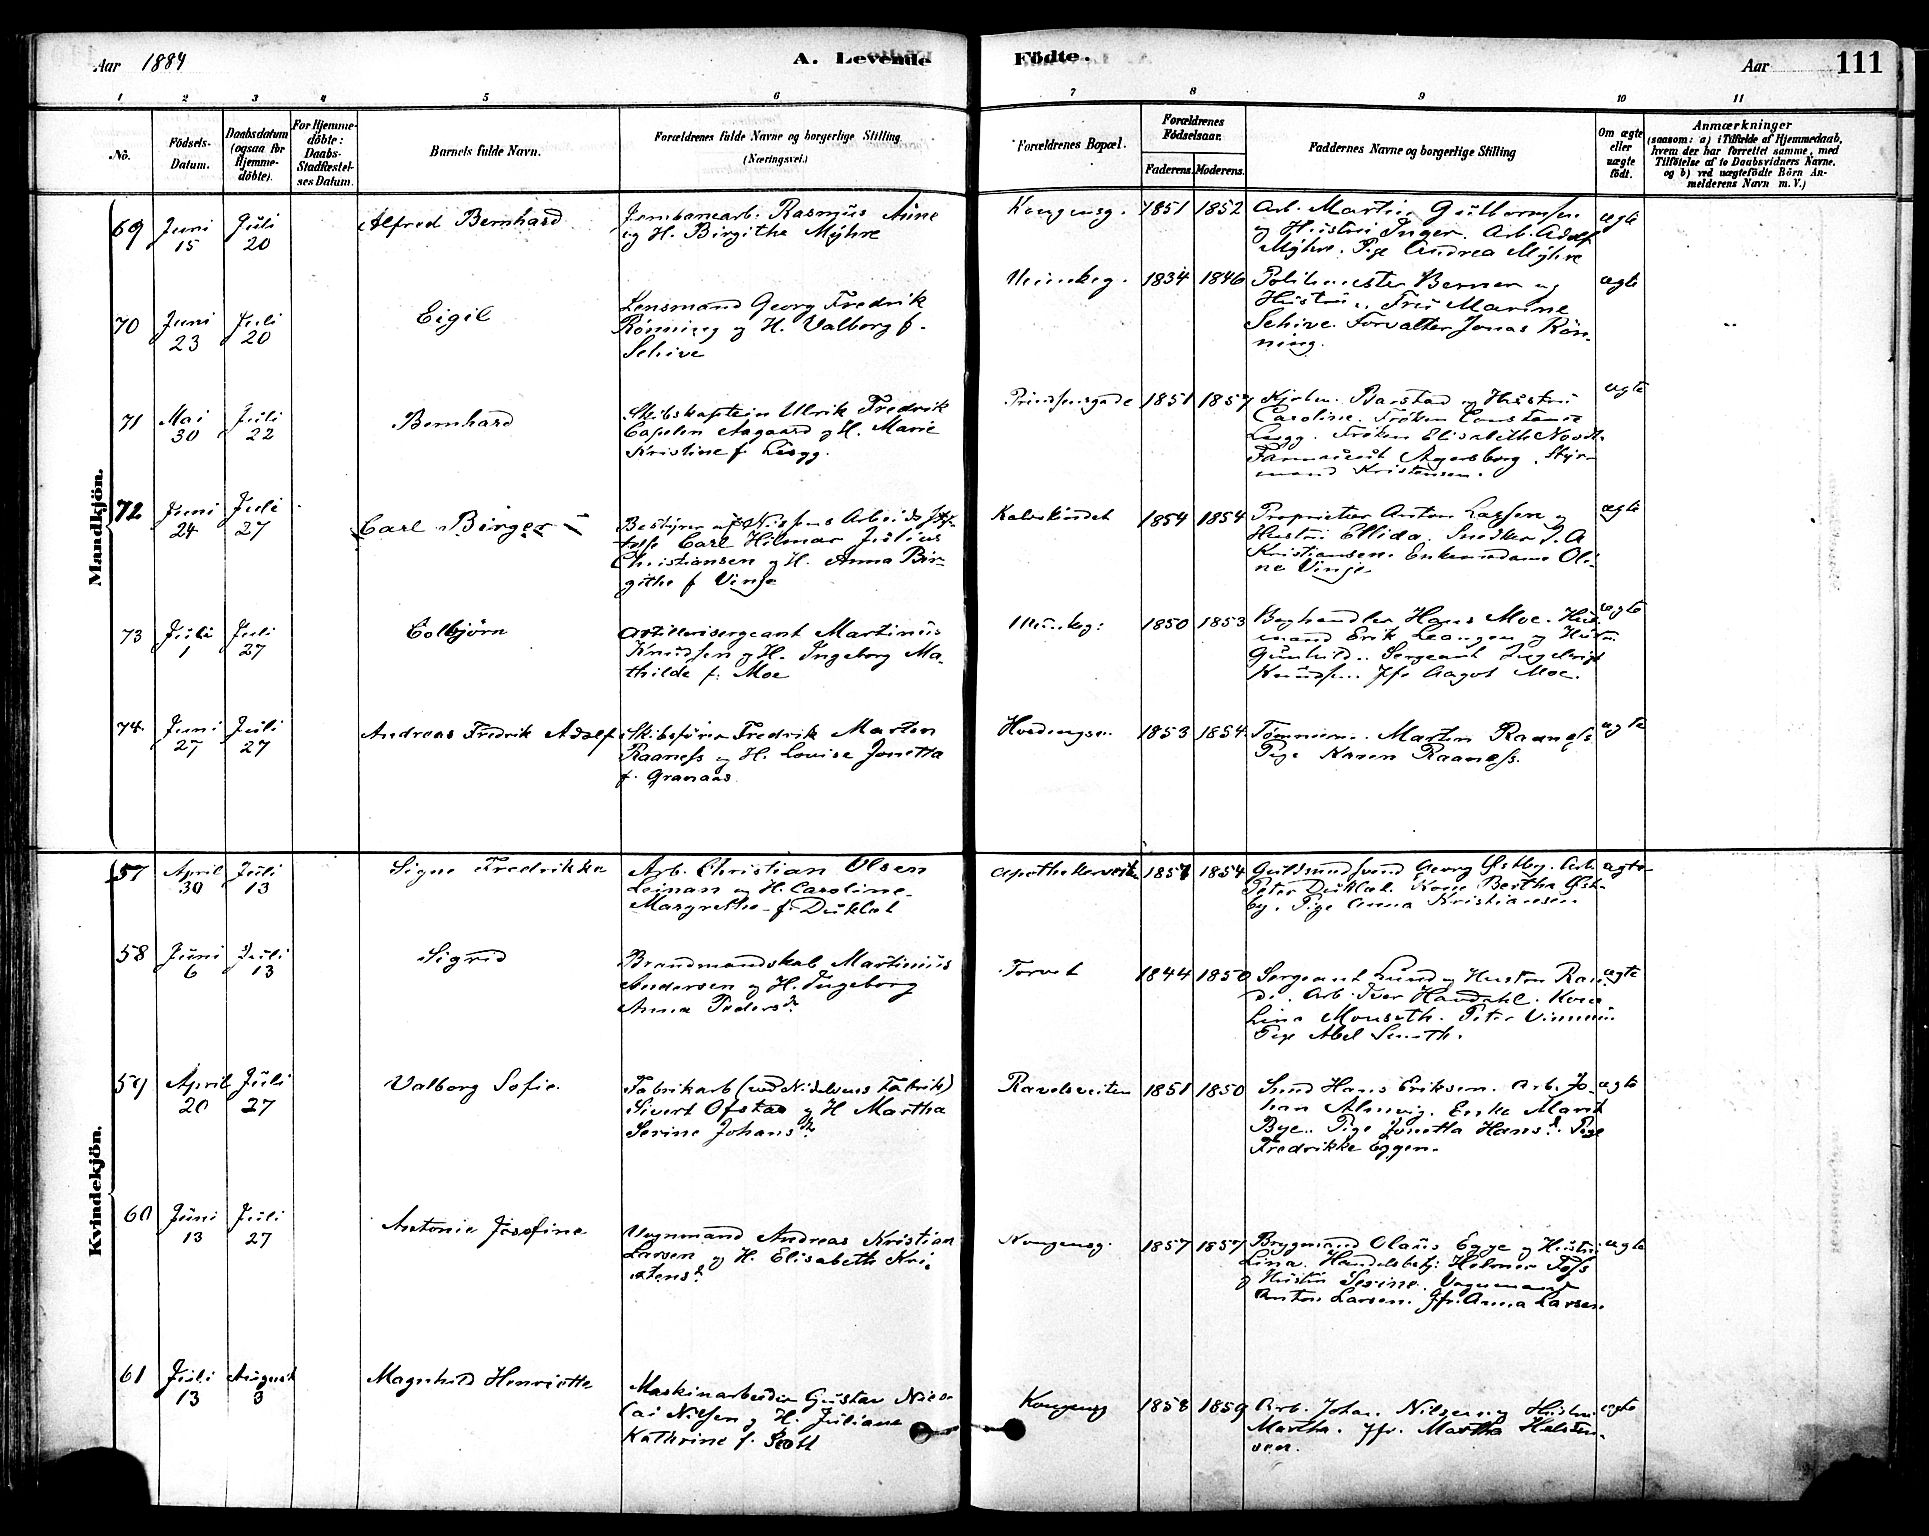 Aar 1884
A. Levende
Födte.
Aar
111
1 2 3 4 5 6 7 8 9 10 11
No.
Födsels-Datum.
Daabsdatum (ogsaa for Hjemme-döbte).
For Hjemme-döbte: Daabs-Stadfæstel-ses Datum.
Barnets fulde Navn.
Forældrenes fulde Navne og borgerlige Stilling (Næringsvei.)
Forældrenes Bopæl.
Forældrenes Födselsaar.
Faderens. Moderens.
Faddernes Navne og borgerlige Stilling
Om ægte eller uægte födt.
Anmærkninger
(saasom: a) i Tilfælde af Hjemmedaab,
hvem der har forrettet samme, med
Tilföielse af to Daabsvidners Navne.
og b) ved uægtefödte Börn An-
melderens Navn m. V.)
Mandkjön.
69 Juni 15 Juli 20 Alfred Bernhard
Jernbanearb. Rasmus Aune
og H. Birgithe Myhre
Kongensg. 1851 1852
Arb. Martin Guttormsen
og Hustru Inger. Arb. Adolf
Myhre. Pige Andrea Myhre
ægte
70 Juni 23 Juli 20 Eigil
Lensmand Georg Fredrik
Rönning og H. Valborg f.
Schive
Munkeg. 1834 1846
Politimester Berner og
Hustru. Fru Marine
Schive. Forvalter Jonas Rön-
ning.
ægte
71 Mai 30 Juli 22 Bernhard
Skibskaptein Ulrik Fredrik
Capelen Aagaard og H. Marie
Kristine f. Lysgg.
Prindsensgade 1851 1857
Kjøbm. Barstad og Hustru
Caroline. Frøken Constance
Frøken Elisabeth
Farmaceut Agersborg. Styr-
mand Kristensen.
ægte
72 Juni 24 Juli 27 Carl Birger
Bestyrer af Nissens Arbeids
Carl Hilmar Julius
Christiansen og H. Anna Bir-
githe f. Vinje
Kalvskindet 1854 1854
Proprietær Anton Lassen og
Hustru Ellida. Snedker J. A
Kristiansen. Enkemadame Oli-
ne Vinje
ægte
73 Juli 1 Juli 27 Colbjörn
Artillerisergeant Martinus
Knudsen og H. Ingeborg Ma-
thilde f. Moe
Munkeg: 1850 1853
Boghandler Hans Moe. Hus-
mand Erik Leangen og Hustru
Gunhild. Sergeant Ingebrigt
Knudsen. Jfr Aagot Moe.
ægte
74 Juni 27 Juli 27 Andreas Fredrik Adolf
Skibsfører Fredrik Morten
Raaness og H. Lovise Jonetta
f. Granaas
1853 1854
Tömmerm. Martin Raaness
Pige Karen Raaness.
ægte
Kvindekjön.
57 April 30 Juli 13 Signe Fredrikke
Arb. Christian Olsen
Leinan og H. Caroline
Margrethe f. Duklæt
Apothekerveiten 1857 1854
Guldsmedsvend Georg Østby. Arb.
Peter Duklæt. Kone Bertha Øst-
by. Pige Anna Kristiansen.
ægte
58 Juni 6 Juli 13 Sigrid
Brandmandskab Martinus
Andersen og H. Ingeborg
Anna Pedersdr
Torvet 1844 1850
Sergeant Lund og Hustru Ran-
di. Arb. Iver Haudahl. Kone
Lina Monseth. Peter
Pige Abel Smith.
ægte
59 April 20 Juli 27 Valborg Sofie
Fabrikarb (ved Nidelvens Fabrik)
Sivert Ofstad og H Martha
Serine Johansdr
Ravelsveiten 1851 1850
Smed Hans Eriksen. Arb. Jo-
han Almvig. Enke Marit
Bye. Pige Jonetta Hansd. Pige
Fredrikke Eggen.
ægte
60 Juni 13 Juli 27 Antonie Josefine
Vognmand Andreas Kristian
Larsen og H. Elisabeth Kri-
stensd
Kongensg. 1857 1857
Brygmand Olaus Egge og Hustru
Lina. Handelsbetj: Helmer Foss
og Hustru Serine. Vognmand
Anton Larsen. Jfr. Anna Larsen
ægte
61 Juli 13 August 3 Magnhild Henriette
Maskinarbeider Gustav Nico-
lai Nilsen og H. Juliane
Kathrine f. Scott
Kongensg 1858 1859
Arb. Johan Nilsen og Hustru
Martha. Jfr. Martha Halsten-
ægte